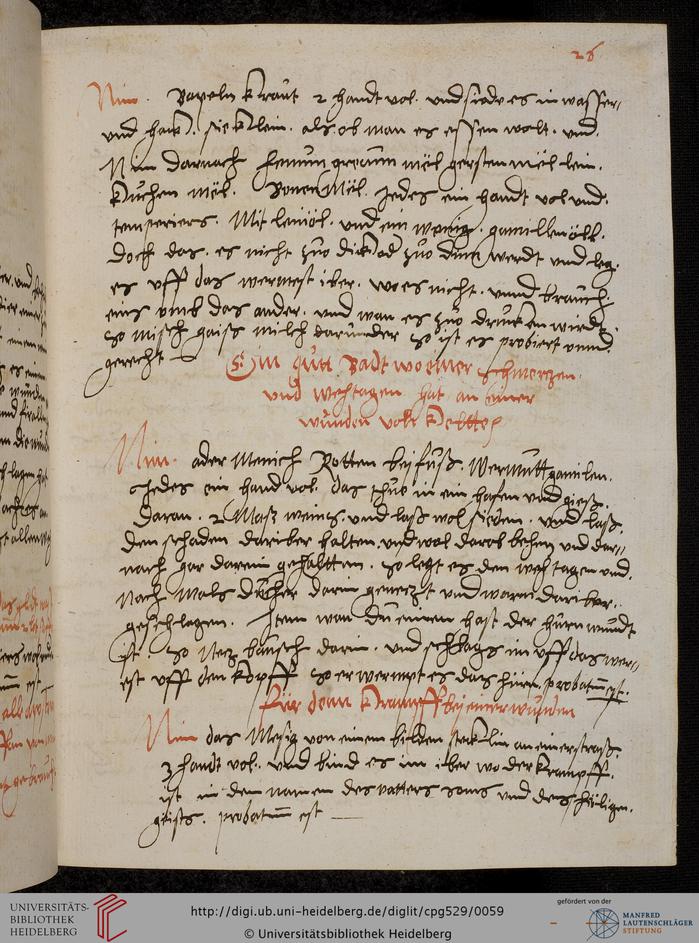 26
Nim. Bapeln kraut 2 handt vol. vnd siede es in wasser,
vnd hack. sie klein. als ob man es essen wolt. vnd.
Nim darnach fenum grecum mël gersten mël lein.
kuchen mël. Bonen Mël. Jedes ein handt vol vnd.
temperiers. Mit leinöl. vnd ein wenig. gamillenöll.
doch das. es nicht zuo dick oder zuo dinn werdt vnd leg.
es vff das wermest iber. wo es nicht. vnnd brauch
eins vmb das ander. vnd wan es zuo drucken wirdt.
so misch gaiss milch darunder so ist es probiert vnnd.
gerecht
Ein gutt Badt wo einer schmerzen.
vnd wehtagen hat an einer
wunden oder
Nim. oder Menich Rotten beifuß. Wermutt gamilen.
Jedes ein hand vol. das thue in ein hafen vnd gieß.
daran. 2 Maß weins. vnd laß wol sieden. vnd laß.
den schaden dariber halten. vnd wol darob behen vnd dar=
nach gar darein gehaltten. so legt es den wehtagen vnd.
Nach Mals diecher darin genezt vnd warm dariber.
geschlagen. Item wan du einen hast der hirn wundt
ist. so Nez beusch darin. vnd schlags im vff das wer=
est vff den kopff so erwermpt es das hirn. probatum est.
für denn krampff bej einer wunden
Nim das Mesig von einem bilden stecklin an einer straß.
3 handt vol. vnd bind es im iber wo der krampff.
ist in dem namen des vatters sons vnd des heiligen.
geists. probatum est
UNIVERSITÄTS-
BIBLIOTHEK
HEIDELBERG
http://digi.ub.uni-heidelberg.de/diglit/cpg529/0059
© Universitätsbibliothek Heidelberg
gefördert von der
MANFRED
LAUTENSCHLÄGER
STIFTUNG